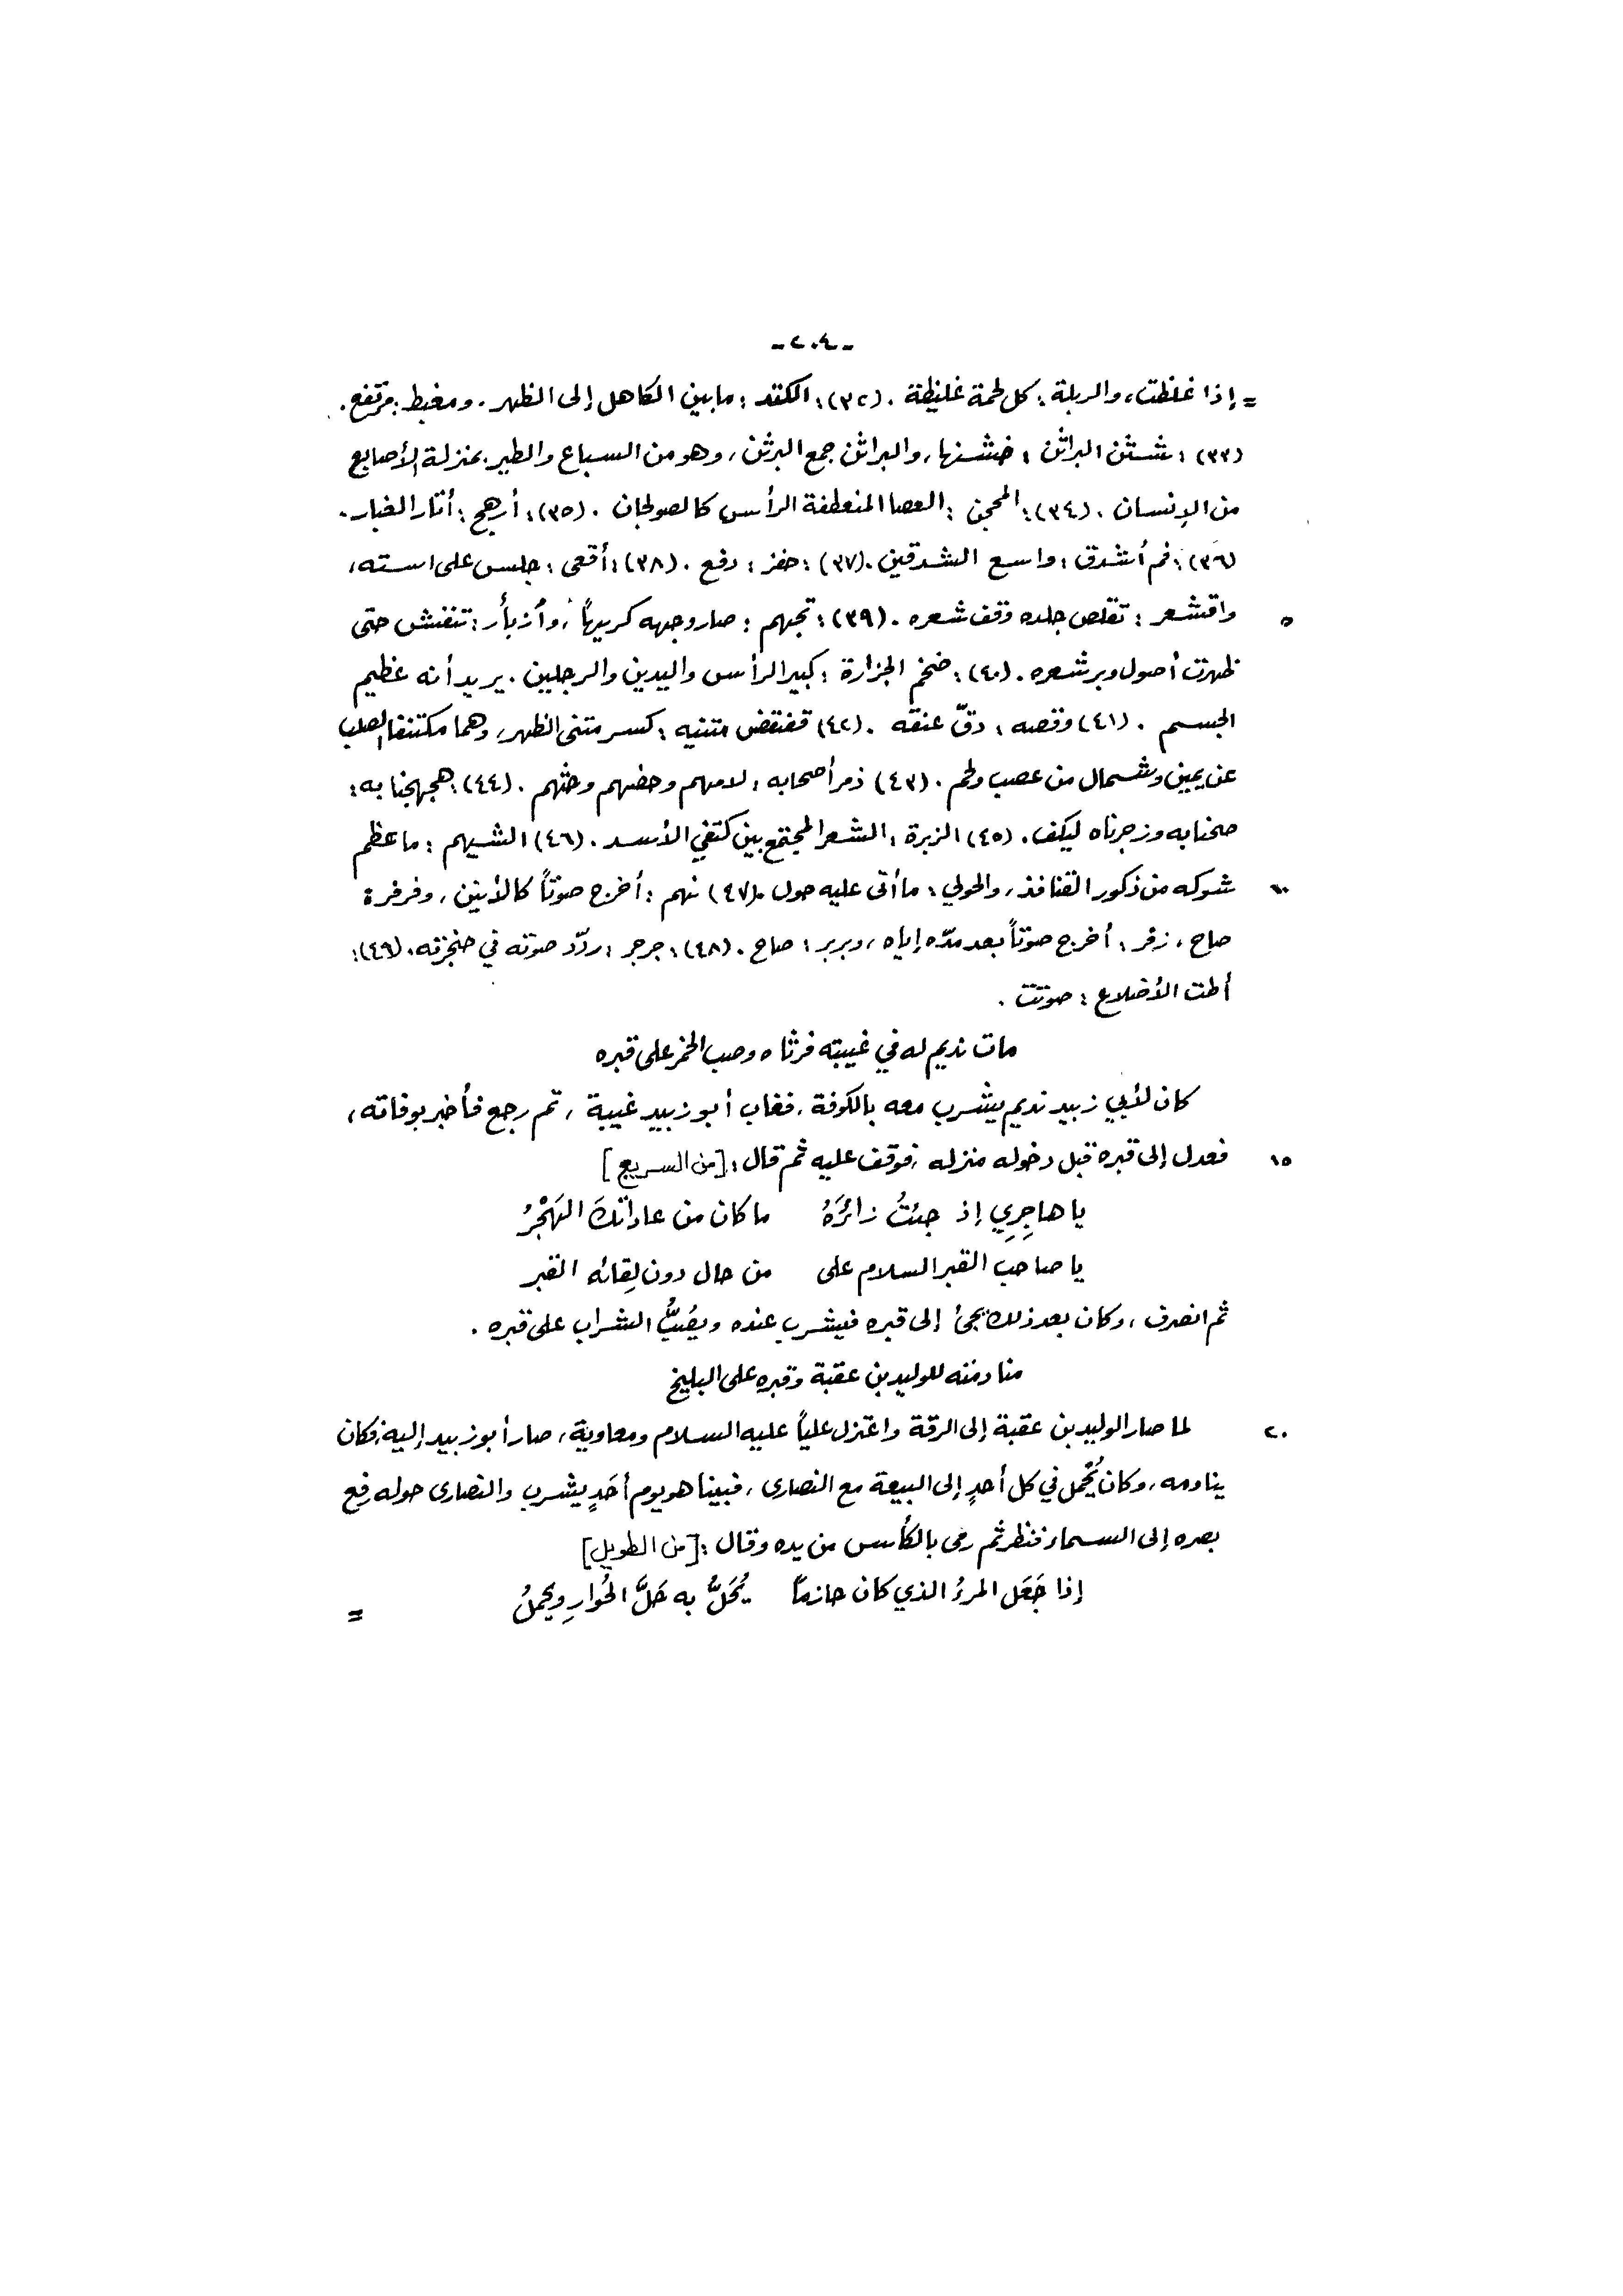 -٢٠٤-
= إذا غلظت، والربلة: كل لحمة غليظة . (٣٢): الكتد: ما بين الكاهل إلى الظهر. ومغبط: مرتفع .
(٣٣): شثن البراثن : خشنها، والبراثن جمع البرثن، وهو من السباع والطير بمنزلة الأصابع
من الإنسان . (٣٤): المحجن : العصا المنعطفة الرأس كالصولجان . (٣٥): أرهج : أثار الغبار .
(٣٦): فم أشدق : واسع الشدقين . (٣٧): حفز : دفع . (٣٨): أقعى : جلس على استه،
٥ واقشعر : تقلص جلده وقف شعره . (٣٩): تجهم : صار وجهه كريهاً، وأزبأر : تنفش حتى
ظهرت أصول وبر شعره . (٤٠): ضخم الجزارة : كبير الرأس واليدين والرجلين . يريد أنه عظيم
الجسم . (٤١) وقصه : دقّ عنقه . (٤٢) فقضقض متنيه : كسر متنى الظهر، وهما مكتنفا الصلب
عن يمين وشمال من عصب ولحم . (٤٣) ذمر أصحابه : لامهم وحضهم وحثهم . (٤٤): هجهجنا به :
صحنا به وزجرناه ليكف . (٤٥) الزبرة : الشعر المجتمع بين كتفي الأسد . (٤٦) الشيهم : ما عظم
١٠ شوكه من ذكور القنافذ، والحولي : ما أتى عليه حول . (٤٧) نهم : أخرج صوتاً كالأنين، وفرفرة
صاح، زفر : أخرج صوتاً بعد مدّه إياه، وبربر : صاح . (٤٨): جرجر : ردّد صوته في حنجرته . (٤٩):
أطت الأضلاع : صوتت .
مات نديم له في غيبته فرثاه وصب الخمر على قبره
كان لأبي زبيد نديم يشرب معه بالكوفة، فغاب أبو زبيد غيبة، ثم رجع فأخبر بوفاته،
١٥ فعدل إلى قبره قبل دخوله منزله، فوقف عليه ثم قال : [من السريع]
يا هاجِرِي إذ جئتُ زائرَهُ ما كان من عاداتكَ الهَجْرُ
يا صاحب القبر السلام على من حال دون لِقائه القبر
ثم انصرف، وكان بعد ذلك يجئ إلى قبره فيشرب عنده ويصُبُّ الشراب على قبره .
منادمته للوليد بن عقبة وقبره على البليخ
٢٠ لما صار الوليد بن عقبة إلى الرقة واعتزل علياً عليه السلام ومعاوية، صار أبو زبيد إليه، فكان
ينادمه، وكان يُحْمل في كل أحدٍ إلى البيعة مع النصارى، فبينا هو يوم أحَدٍ يشرب والنصارى حوله رفع
بصره إلى السماء فنظر ثم رمى بالكأس من يده وقال : [من الطويل]
إذا جَعَل المرءُ الذي كان حازماً يُحَلُّ به حَلَّ الحُوارِ ويحملُ
=